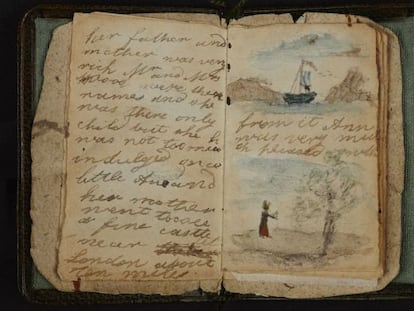 her father and
mother was very
rich Mr and Mrs
Wood were their
names and she
was there only
child but she
was not too mea
indulged once
little Ann and
her mother
went to see
a fine castle
near
London about
ten miles
from it Ann
was very mu
ch pleased with